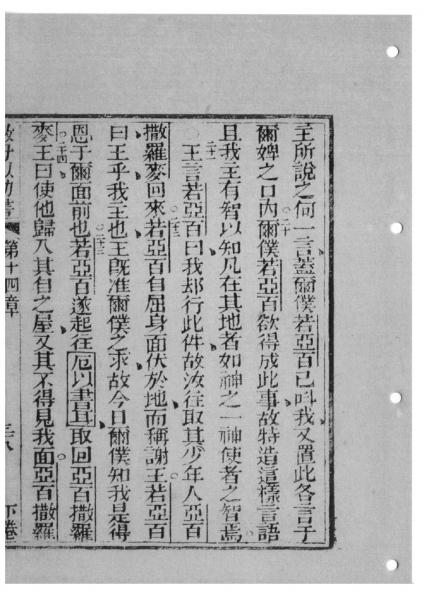 王所說之何一言蓋爾僕若亞百已呌我又置此各言于
爾婢之口內爾僕若亞百欲得成此事故特造這樣言語
且我主有智以知凡在其地者如神之一神使者之智焉
王言若亞百曰我却行此件故汝往取其少年人亞百
撒羅麥回來若亞百自屈身面伏於地而稱謝王若亞百
曰王乎我主也王既准爾僕之求故今日爾僕知我是得
恩于爾面前也若亞百遂起往厄以書耳取回亞百撒羅
麥王曰使他歸入其自之屋又其不得見我面亞百撒羅
第十四章 下卷